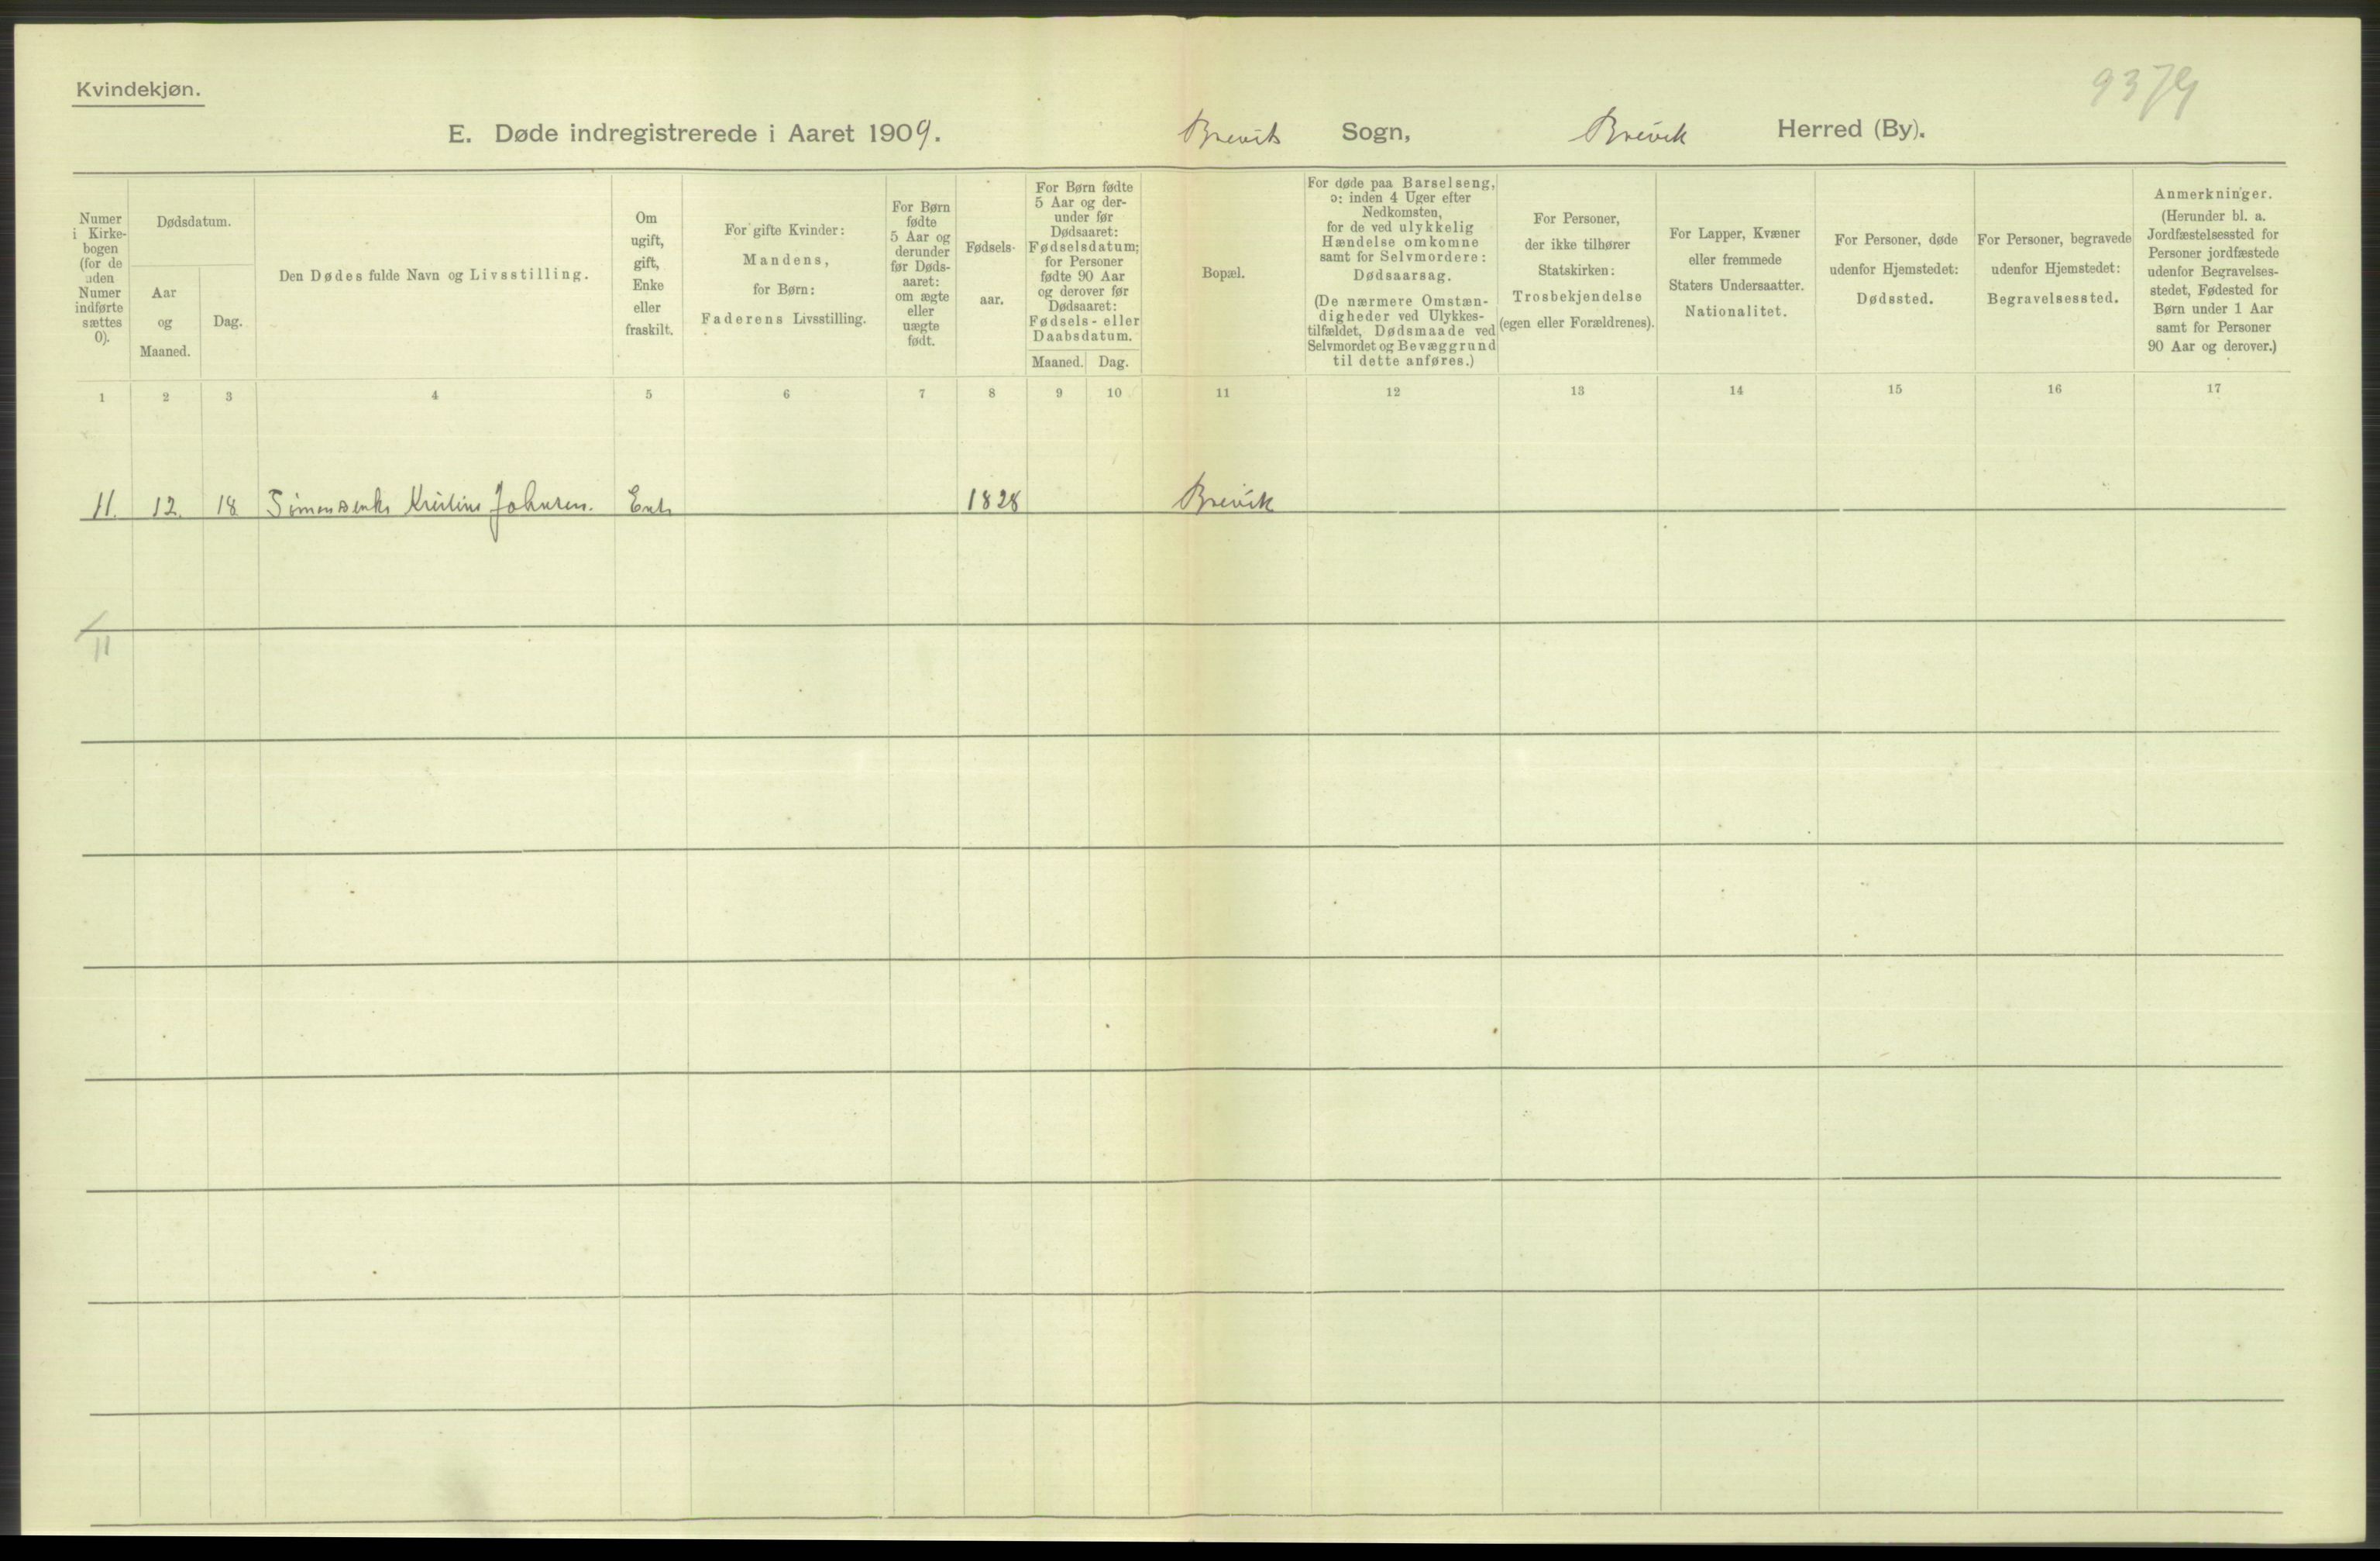 Kvindekjøn.
9379
E. Døde indregistrerede i Aaret 1909. Breviks Sogn, Brevik Herred (By).
Numer
i Kirke-
bogen
(for de
uden
Numer
indførte
sættes
0).
Dødsdatum.
Aar
og
Maaned.
Dag.
Den Dødes fulde Navn og Livsstilling.
Om
ugift,
gift,
Enke
eller
fraskilt.
For gifte Kvinder:
Mandens,
for Børn:
Faderens Livsstilling.
For Børn
fødte
5 Aar og
derunder
før Døds-
aaret:
om ægte
eller
uægte
født.
Fødsels-
aar.
For Børn fødte
5 Aar og der-
under før
Dødsaaret:
Fødselsdatum;
for Personer
fødte 90 Aar
og derover før
Dødsaaret:
Fødsels- eller
Daabsdatum.
Maaned. Dag.
Bopæl.
For døde paa Barselseng,
ɔ: inden 4 Uger efter
Nedkomsten,
for de ved ulykkelig
Hændelse omkomne
samt for Selvmordere:
Dødsaarsag.
(De nærmere Omstæn-
digheder ved Ulykkes-
tilfældet, Dødsmaade ved
Selvmordet og Bevæggrund
til dette anføres.)
For Personer,
der ikke tilhører
Statskirken:
Trosbekjendelse
(egen eller Forældrenes).
For Lapper, Kvæner
eller fremmede
Staters Undersaatter.
Nationalitet.
For Personer, døde
udenfor Hjemstedet:
Dødssted.
For Personer, begravede
udenfor Hjemstedet:
Begravelsessted.
Anmerkninger.
(Herunder bl. a.
Jordfæstelsessted for
Personer jordfæstede
udenfor Begravelses-
stedet, Fødested for
Børn under 1 Aar
samt for Personer
90 Aar og derover.)
1 2 3 4 5 6 7 8 9 10 11 12 13 14 15 16 17
11. 12. 18 Kristine Johnsen. Enke 1828 Brevik
11